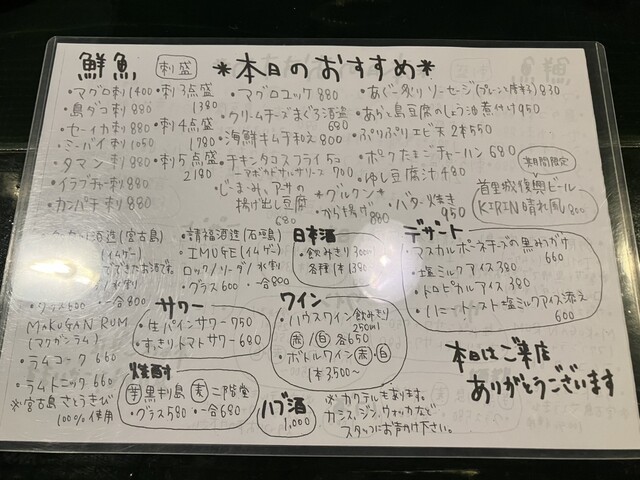 鮮魚
刺盛
*本日のおすすめ*
・マグロ刺1400
・島ダコ刺880
・セーイカ刺880
・ミーバイ刺1050
・タマン刺880
・イラブチャー刺880
・カンパチ刺880
・刺3点盛
1380
・刺4点盛
1780
・刺5点盛
2180
・マグロユッケ880
・クリームチーズまぐろ酒盗
680
・海鮮キムチ和え800
・チキンタコスフライ5コ
ーアボカドサルサソース700
・じーまーみ、アーサの
揚げ出し豆腐
680
*グルクン*
・から揚げ
880
・バター焼き
950
・あぐー炙りソーセージ(プレーンと
830
・あぐーと島豆腐のしょう油煮付け950
・ぷりぷりエビ天2本550
・ポークたまごチャーハン680
・ゆし豆腐汁480
期間限定
首里城復興ビール
KIRIN晴れ風800
酒造(宮古島)
お酒です。
・グラス600 ・一合800
MAKUGAN RUM
(マクガンラム)
・ラムコーク660
・ラムトニック660
※宮古島さとうきび
100%使用
・請福酒造(石垣島)
・IMUGE(イムゲー)
ロック/ソーダ/水割
・グラス600 ・一合880
日本酒
・飲みきり300ml
各種1本1380
サワー
・生パインサワー750
・すっきりトマトサワー680
焼酎
芋 黒キリ島 麦 二階堂
・グラス580 ・一合680
ワイン
・ハウスワイン飲みきり
250ml
赤/白 各650
・ボトルワイン赤・白
1本3,500〜
ハブ酒
1,000
※カクテルもあります。
カシス、ジン、ウォッカなど
スタッフにお声かけ下さい。
デザート
・マスカルポーネチーズの黒みつがけ
660
・塩ミルクアイス380
・トロピカルアイス380
・ハニートースト塩ミルクアイス添え
600
本日はご来店
ありがとうございます